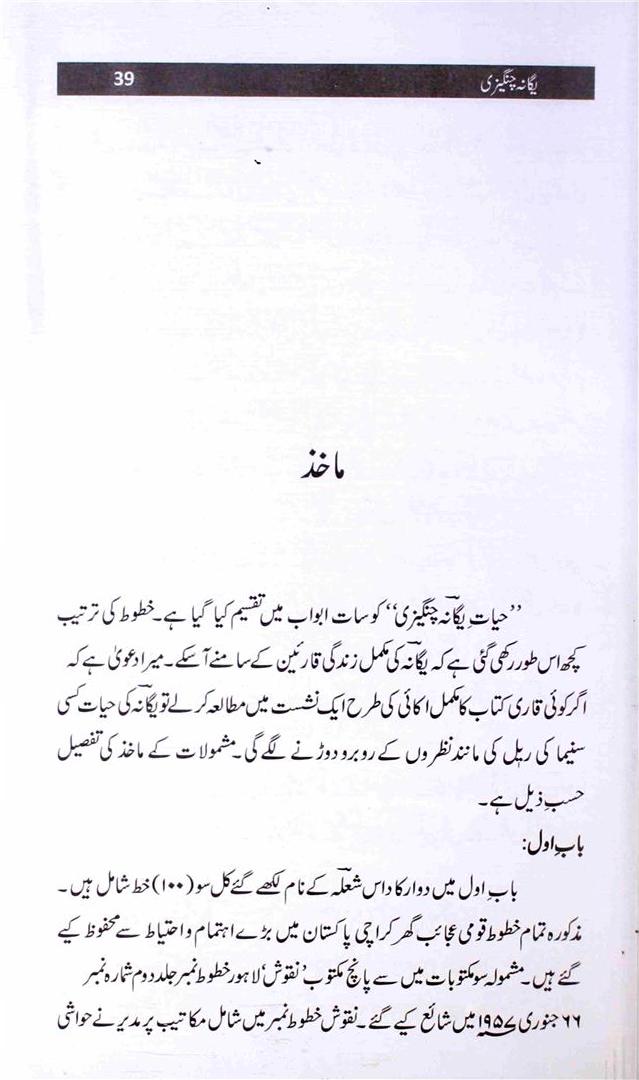 یگانہ چنگیزی 39
ماخذ
”حیاتِ یگانہؔ چنگیزی“ کو سات ابواب میں تقسیم کیا گیا ہے۔ خطوط کی ترتیب
کچھ اس طور رکھی گئی ہے کہ یگانہؔ کی مکمل زندگی قارئین کے سامنے آ سکے۔ میرا دعویٰ ہے کہ
اگر کوئی قاری کتاب کا مکمل اکائی کی طرح ایک نشست میں مطالعہ کر لے تو یگانہؔ کی حیات کسی
سنیما کی ریل کی مانند نظروں کے روبرو دوڑنے لگے گی۔ مشمولات کے ماخذ کی تفصیل
حسبِ ذیل ہے۔
بابِ اول:
بابِ اول میں دوارکا داس شعلہؔ کے نام لکھے گئے کل سو (۱۰۰) خط شامل ہیں۔
مذکورہ تمام خطوط قومی عجائب گھر کراچی پاکستان میں بڑے اہتمام و احتیاط سے محفوظ کیے
گئے ہیں۔ مشمولہ سو مکتوبات میں سے پانچ مکتوب ’نقوش‘ لاہور خطوط نمبر جلد دوم شمارہ نمبر
۶۶ جنوری ۱۹۵۷ میں شائع کیے گئے۔ نقوش خطوط نمبر میں شامل مکاتیب پر مدیر نے حواشی